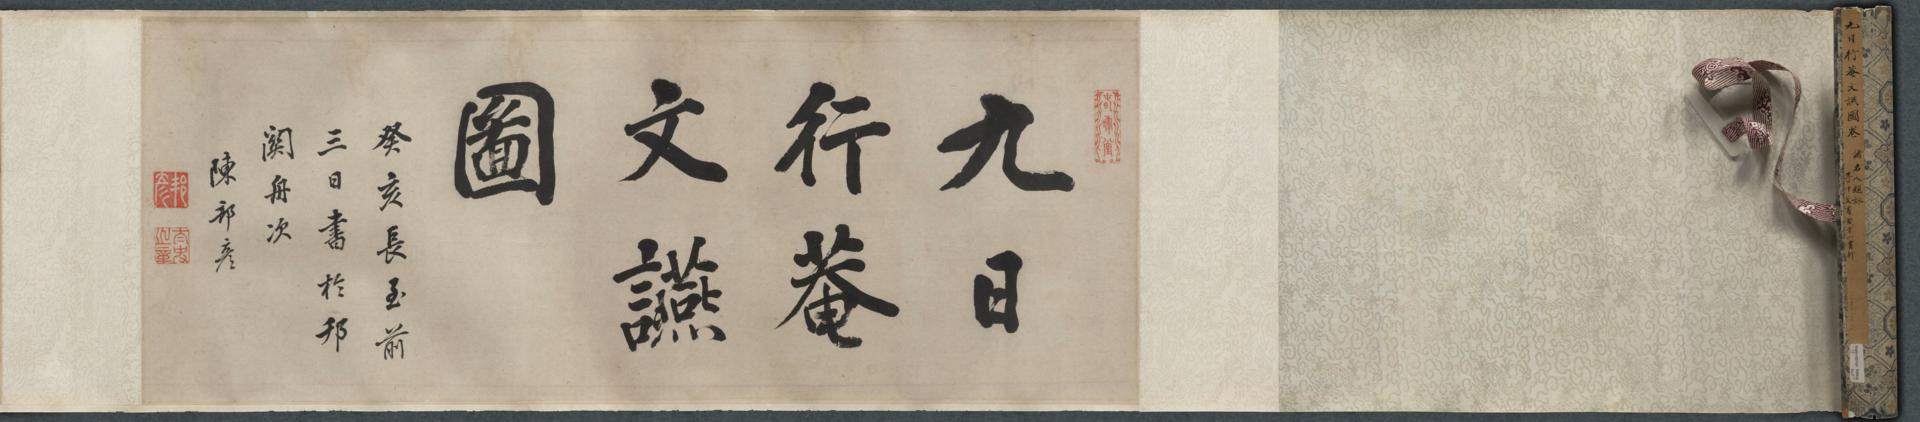 九日行菴文讌圖卷
九日
行菴
文讌
圖
癸亥長至前
三日書於邗
關舟次
陳邦彥
邦彥